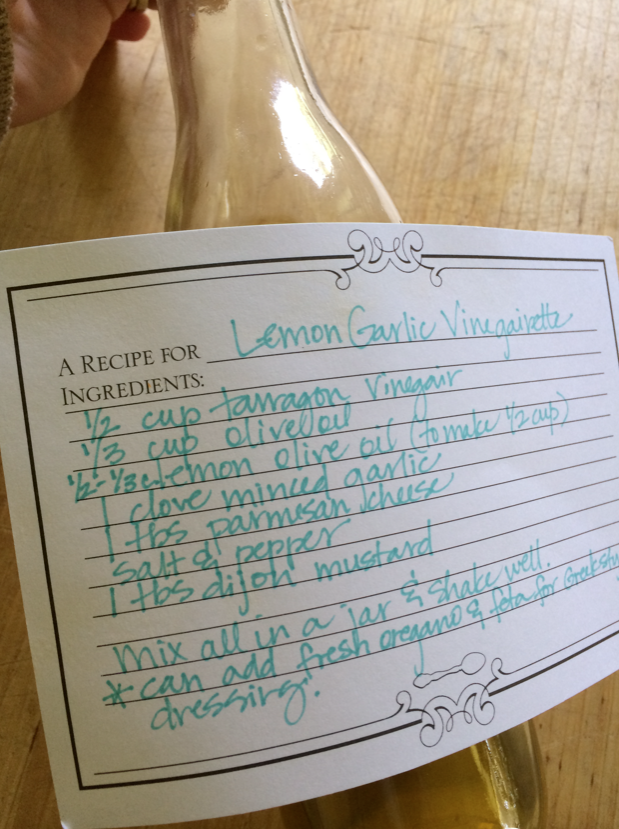 A RECIPE FOR Lemon Garlic Vinegairette
INGREDIENTS:
1/2 cup tarragon vinegair
1/3 cup olive oil
1/2 - 1/3 c lemon olive oil (to make 1/2 cup)
1 clove minced garlic
1 tbs parmesan cheese
salt & pepper
1 tbs dijon mustard
Mix all in a jar & shake well.
* can add fresh oregano & feta for
dressing!